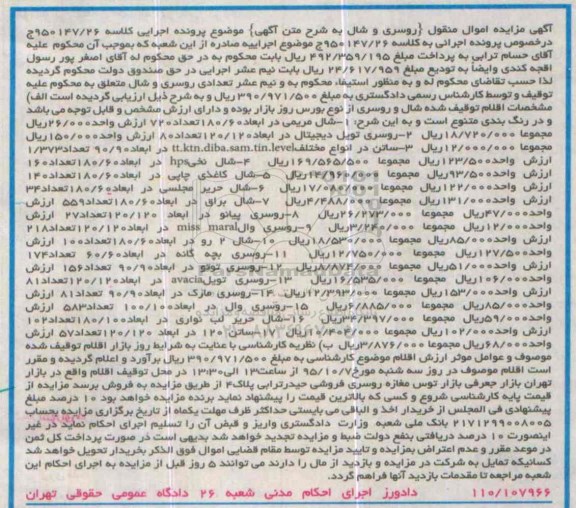 آگهی مزایده اموال منقول {روسری و شال به شرح متن آگهی} موضوع پرونده اجرایی کلاسه ۹۵۰۱۴۷/۲۶ج
درخصوص پرونده اجرائی به کلاسه ۹۵۰۱۴۷/۲۶ج موضوع اجراییه صادره از این شعبه که بموجب آن محکوم علیه
آقای حسام ترابی به پرداخت مبلغ ۴۹۲/۳۵۹/۱۹۵ ریال بابت محکوم به در حق محکوم له آقای اصغر پور رسول
اقجه کندی وایضاً به تودیع مبلغ ۲۴/۶۱۷/۹۵۹ ریال بابت نیم عشر اجرایی در حق صندوق دولت محکوم گردیده
لذا حسب تقاضای محکوم له و به منظور استیفاء محکوم به و نیم عشر تعدادی روسری و شال متعلق به محکوم علیه
توقیف و توسط کارشناس رسمی دادگستری به مبلغ ۳۹۰/۹۷۱/۵۰۰ ریال و به شرح ذیل ارزیابی گردیده است الف)
مشخصات اقلام توقیف شده شال و روسری از نوع بورس روز بازار بوده و دارای ارزش مشخص و قابل توجه می باشد
و در رنگ بندی متنوع است و به این شرح: ۱-شال مریمی در ابعاد۱۸۰/۶۰تعداد۷۲۰ ارزش واحد۲۶/۰۰۰ریال
مجموعا ۱۸/۷۲۰/۰۰۰ریال ۲-روسری تویل دیجیتال در ابعاد۱۲۰/۱۲۰تعداد۸۰ ارزش واحد۱۵۰/۰۰۰ریال
مجموعا ۱۲/۰۰۰/۰۰۰ریال ۳-ساتن در انواع مختلفtt.ktn.diba.sam.tin.level در ابعاد۹۰/۹۰ تعداد۱/۳۷۳
ارزش واحد۱۲۳/۵۰۰ریال مجموعا ۱۶۹/۵۶۵/۵۰۰ریال ۴-شال نخیhps در ابعاد۱۸۰/۶۰تعداد۱۶۰
ارزش واحد۹۳/۵۰۰ریال مجموعا ریال ۵-شال کاغذی چاپی در ابعاد۱۸۰/۶۰تعداد۱۴۰
ارزش واحد۱۲۲/۰۰۰ریال مجموعا ریال ۶-شال حریر مجلسی در ابعاد۱۸۰/۶۰تعداد۳۴
ارزش واحد۱۳۱/۰۰۰ریال مجموعا ۴/۴۸۸/۰۰۰ریال ۷-شال براق در ابعاد۱۸۰/۶۰تعداد۵۵۹ ارزش
واحد۴۷/۰۰۰ریال مجموعا ۲۶/۲۷۳/۰۰۰ریال ۸-روسری پیانو در ابعاد ۱۲۰/۱۲۰تعداد۲۷ ارزش
واحد۱۲/۰۰۰ریال مجموعا ۳/۲۴۰/۰۰۰ریال ۹-روسری والmiss maral در ابعاد۱۲۰/۱۲۰تعداد۲۱۸
ارزش واحد۸۵/۰۰۰ریال مجموعا ۱۸/۵۳۰/۰۰۰ریال ۱۰-شال ۲ رو در ابعاد۱۸۰/۶۰تعداد۱۰۰ ارزش
واحد۱۲۷/۵۰۰ریال مجموعا ۱۲/۷۵۰/۰۰۰ریال ۱۱-روسری بچه گانه در ابعاد۶۰/۶۰ تعداد۱۷۴
ارزش واحد۵۱/۰۰۰ریال مجموعا ۸/۸۷۴/۰۰۰ریال ۱۲-روسری توتو در ابعاد۹۰/۹۰ تعداد۱۵۶ ارزش
واحد۱۰۶/۰۰۰ریال مجموعا ۱۶/۵۳۵/۰۰۰ریال ۱۳-روسری تویلavacia در ابعاد۱۲۰/۱۲۰تعداد۸۱
ارزش واحد۱۵۳/۰۰۰ریال مجموعا ۱۲/۳۹۳/۰۰۰ریال ۱۴-روسری مازک در ابعاد۹۰/۹۰ تعداد۸۱ ارزش
واحد۸۵/۰۰۰ریال مجموعا ۶/۸۸۵/۰۰۰ریال ۱۵-روسری وال در ابعاد۱۰۰/۱۰۰ تعداد۵۸۳ ارزش
واحد۵۹/۰۰۰ریال مجموعا ۳۴/۳۹۷/۰۰۰ریال ۱۶-شال حریر لب نواری در ابعاد۱۸۰/۱۰۰تعداد۱۰۲
ارزش واحد۱۰۲/۰۰۰ریال مجموعا ۱۰/۴۰۴/۰۰۰ریال ۱۷-ساتن۱۲۰ در ابعاد ۱۲۰/۱۲۰تعداد۵۷ ارزش
واحد۶۸/۰۰۰ریال مجموعا ۳/۸۷۶/۰۰۰ریال ب) نظریه کارشناسی با عنایت به شرایط روز بازار اقلام توقیف شده
موصوف و عوامل موثر ارزش اقلام موضوع کارشناسی به مبلغ ۳۹۰/۹۷۱/۵۰۰ ریال برآورد و اعلام گردیده و مقرر
است اقلام موصوف در روز سه شنبه مورخ۹۵/۱۰/۷ از ساعت۱۳ الی۱۳:۳۰ در محل توقیف اقلام واقع در بازار
تهران بازار جعرفی بازار توس مغازه روسری فروشی حیدرترابی پلاک۴ از طریق مزایده به فروش برسد مزایده از
قیمت پایه کارشناسی شروع و کسی که بالاترین قیمت را پیشنهاد نماید برنده مزایده خواهد بود ۱۰ درصد مبلغ
پیشنهادی فی المجلس از خریدار اخذ و الباقی می بایستی حداکثر ظرف مهلت یکماه از تاریخ برگزاری مزایده بحساب
۲۱۷۱۲۹۹۰۰۸۰۰۵ بانک ملی شعبه وزارت دادگستری واریز و قبض آن را تسلیم اجرای احکام نماید در غیر
اینصورت ۱۰ درصد دریافتی بنفع دولت ضبط و مزایده تجدید خواهد شد بدیهی است در صورت پرداخت کل ثمن
در موعد مقرر و عدم اعتراض بمزایده و تایید مزایده توسط مقام قضایی اموال فوق الذکر بخریدار تحویل خواهد شد
کسانیکه تمایل به شرکت در مزایده و بازدید از مال را دارند می توانند ۵ روز قبل از مزایده به اجرای احکام این
شعبه مراجعه تا مقدمات بازدید آنها فراهم گردد.
۱۱۰/۱۰۷۹۶۶ دادورز اجرای احکام مدنی شعبه ۲۶ دادگاه عمومی حقوقی تهران